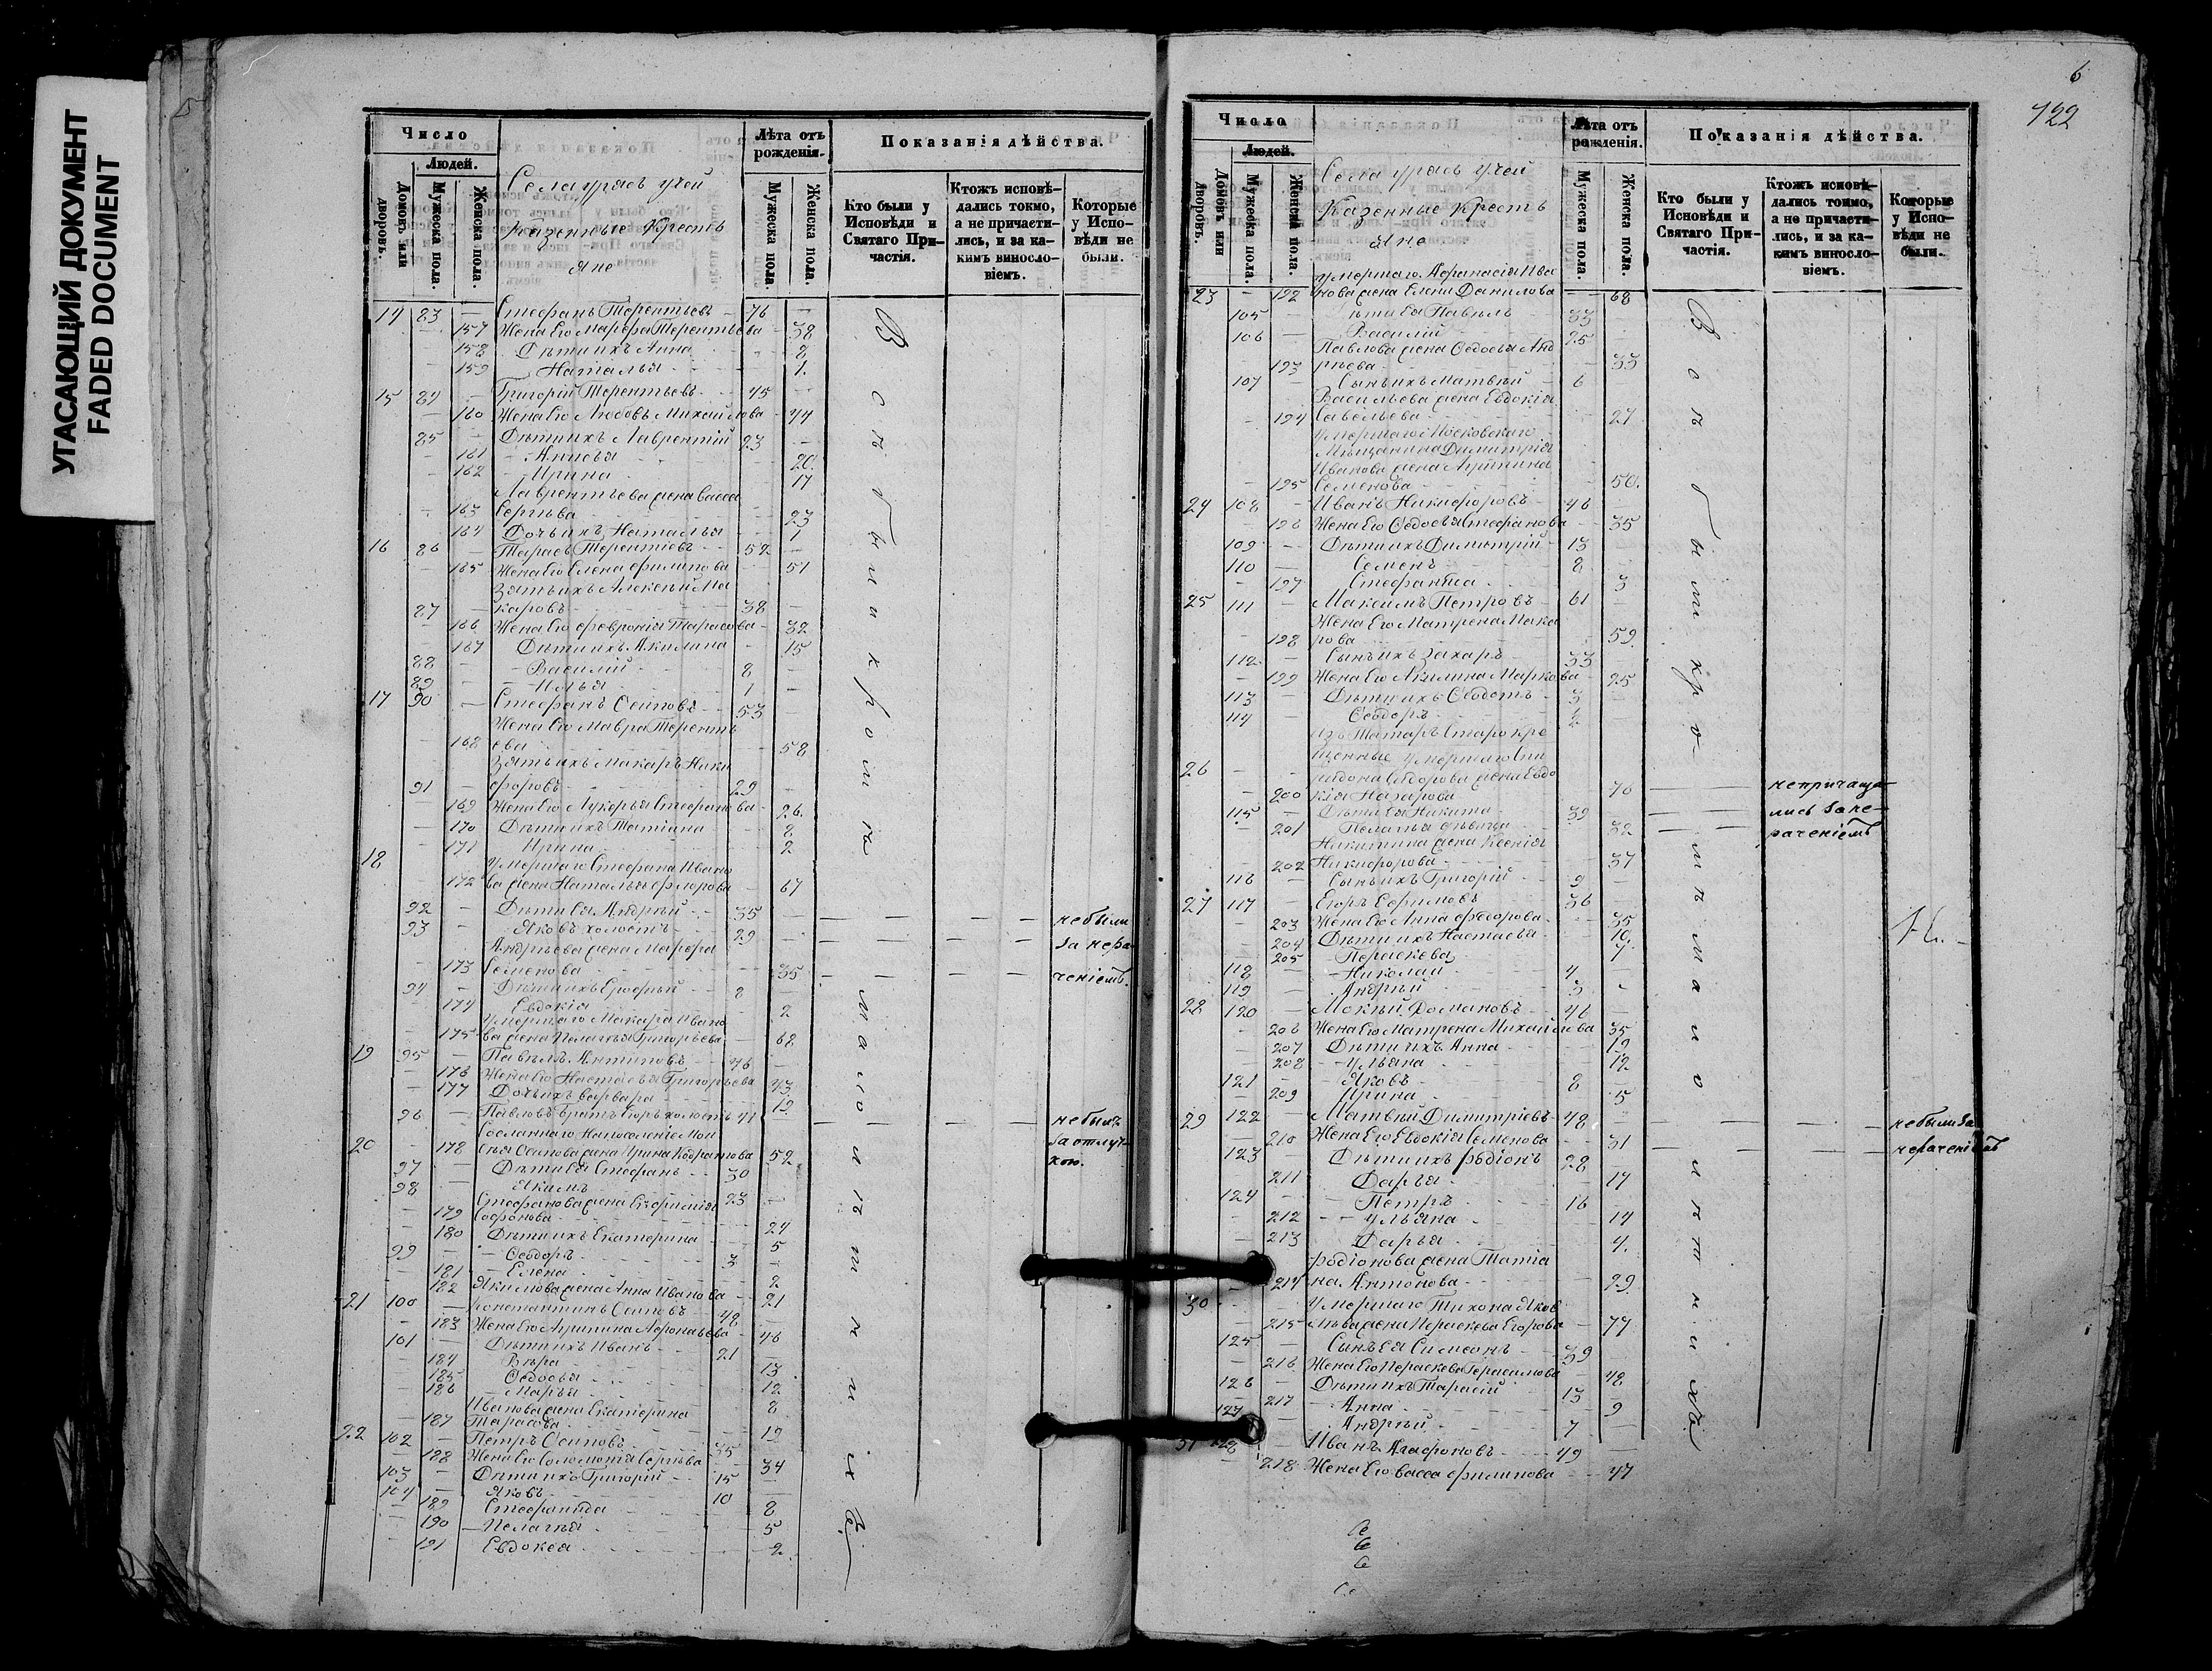 УГАСАЮЩИЙ ДОКУМЕНТ
FADED DOCUMENT
Число
Людей.
Домовъ или дворовъ.
Мужеска пола.
Женска пола.
Лѣта отъ рожденія.
Мужеска пола.
Женска пола.
Показанія дѣйства.
Кто были у Исповѣди и Святаго Причастія.
Ктожъ исповѣдались токмо, а не причастились, и за какимъ винословіемъ.
Которые у Исповѣди не были.
Казенные Кресть
яне
83 — Стефанъ Терентьевъ — 
157 Жена Его Марфа Терентьева — 38
158 Дѣти ихъ Анна 8
159 Наталья 1.
15 84 — Григорій Терентьевъ 45
160 Жена Его Любовь Михайлова 44
85 — Дѣти ихъ Лаврентій 23
161 Анисья 20.
162 Ирина 17
Лаврентьева жена Васса
163 Сергѣева 23
164 Дочь ихъ Наталья 1
16 86 — Тарасъ Терентіевъ 52
165 Жена Его Елена Филипова 51
Зять ихъ Алексѣй Ма
87 — каровъ 38
166 Жена Его Февронія Тарасова 32
167 Дѣти ихъ Акилина 15
88 — Василій 8
89 — Илья 1
17 90 — Стефанъ Осиповъ 53
Жена Его Мавра Терентъ
168 ева 58
Зять ихъ Макаръ Ники
91 — форовъ 29
169 Жена Его Лукерья Стефанова 26.
170 Дѣти ихъ Татіана 8
171 Ирина 2
18 Умершаго Стефана Ивано
172 ва жена Наталья Флорова 67
92 — Дѣти Ея Андрѣй 35 — не были
93 — Яковъ холостъ 29 — за нера-
Андрѣева жена Марфа
173 Семенова 35 — ченіемъ.
94 — Дѣти ихъ Ерофѣй 8
174 Евдокія 2
Умершаго Макара Ивано
175 ва жена Пелагѣя Григорьева 68
19 95 — Павелъ Антиповъ 46
176 Жена Его Настасья Григорьева 43
177 Дочь ихъ Варвара
96 — Павловъ братъ Егоръ холостъ 41 — не былъ
за отлуч-
кою.
20 178 52
97 — Дѣти Ея Стефанъ 30
98 — Якимъ 23
Стефанова жена Евфимія
179 24
180 Дѣти ихъ Екатерина 5
99 — Ѳеодоръ 3
181 Елена 2
182 Якимова жена Анна Иванова 21
21 100 — Константинъ Осиповъ 48
183 Жена Его Агрипина Афонасьева 46
101 — Дѣти ихъ Иванъ 21
184 Вѣра 13
185 Ѳедосья 12
186 Марья 8
Иванова жена Екатерина
187 Тарасова 19
22 102 — Петръ Осиповъ 35
188 Жена Его Соломонія Сергѣева 34
103 — Дѣти ихъ Григорій 15
104 — Яковъ 10
189 Стефанида 8
190 Пелагѣя 5
191 Евдокея 2.
Всѣ были кромѣ малолѣтнихъ.
6
722
Число
Людей.
Домовъ или дворовъ.
Мужеска пола.
Женска пола.
Лѣта отъ рожденія.
Мужеска пола.
Женска пола.
Показанія дѣйства.
Кто были у Исповѣди и Святаго Причастія.
Ктожъ исповѣдались токмо, а не причастились, и за какимъ винословіемъ.
Которые у Исповѣди не были.
Казенные Кресть
яне
Умершаго Афанасія Ива
23 — 192 нова жена Елена Данилова — 68
105 — Дѣти Ея Павелъ 33
106 — Василій 25
Павлова жена Ѳедосья Анд
193 рѣева 33
107 — Сынъ ихъ Матвѣй — 6
Васильева жена Евдокія
194 Савельева 27
Умершаго Московскаго
Мѣщанина Димитрія
Иванова жена Агрипина
195 Семенова 50.
24 108 — Иванъ Никифоровъ — 46
196 Жена Его Ѳедосья Стефанова — 35
109 — Дѣти ихъ Димитрій 13
110 — Семенъ 8
197 Стефанида 3
25 111 — Максимъ Петровъ — 61
Жена Его Матрена Мака
198 рова 59.
112. — Сынъ ихъ Захаръ 33
199 Жена Его Акилина Маркова 25
113 — Дѣти ихъ Ѳедотъ 3
114 — Ѳеодоръ
изъ Татаръ Старокре
щенные Умершаго Спи
26 — ридона Ѳедорова жена Евдо
200 кія Назарова 70 — не причаща-
115 — Дѣти Ея Никита 39 — лись за не-
201 Пелагѣя дѣвица 32 — раченіемъ
Никитина жена Ксенія
202 Никифорова 37
116 — Сынъ ихъ Григорій 9
27 117 — Егоръ Ефимовъ 36
203 Жена Его Анна Федорова 35
204 Дѣти ихъ Настасья 10.
205 Пераскева 7.
118 — Николай 4
119 — Андрѣй 3
28 120 — Мокѣй Домановъ 46
206 Жена Его Матрена Михайлова 35
207 Дѣти ихъ Анна 19
208 Ульяна 12
121 — Яковъ 8
209 Ирина 5
29 122 — Матвѣй Димитріевъ 48 — не были за
210 Жена Его Евдокія Семенова 31 — нераченіемъ
123 — Дѣти ихъ Родіонъ 28
211 Дарья 17
124 — Петръ 16
212 Ульяна 14
213 Дарья 4.
Родіонова жена Татіа
214 на Антонова 29
30 — Умершаго Тихона Яков
215 лева жена Пераскева Егорова 77
125 — Сынъ Ея Симеонъ 39
216 Жена Его Пераскева Герасимова 48
126 — Дѣти ихъ Тарасій 13
217 Анна 9
127 — Андрѣй 7
31 128 — Иванъ Агафоновъ 49
218 Жена Его Васса Филипова 47
Всѣ были кромѣ малолѣтнихъ